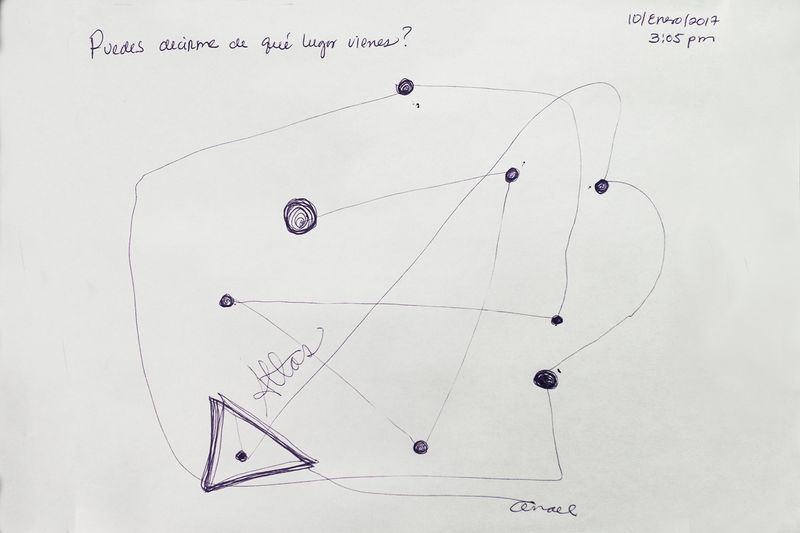 Puedes decirme de qué lugar vienes?
10/Enero/2017
3:05 pm